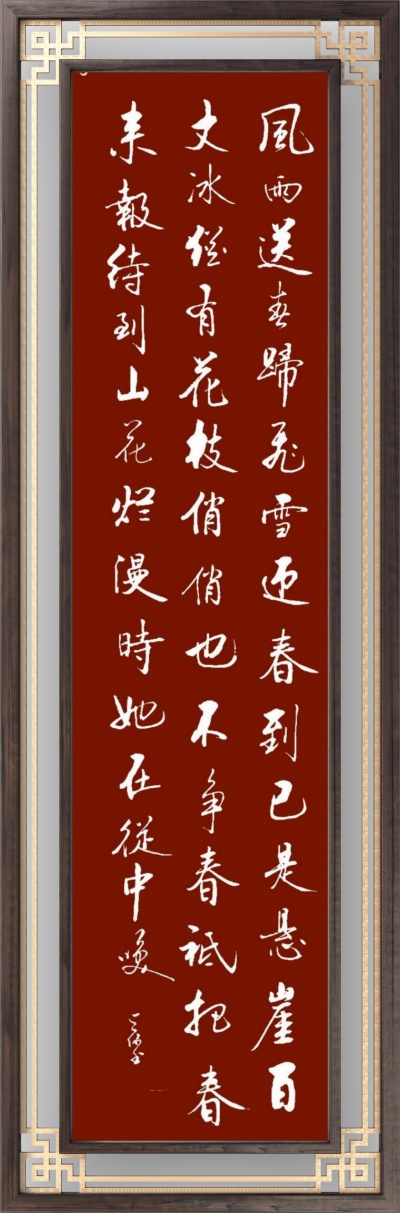 風雨送春歸飛雪迎春到已是悬崖百
丈冰猶有花枝俏俏也不争春祇把春
来報待到山花烂漫時她在從中咲